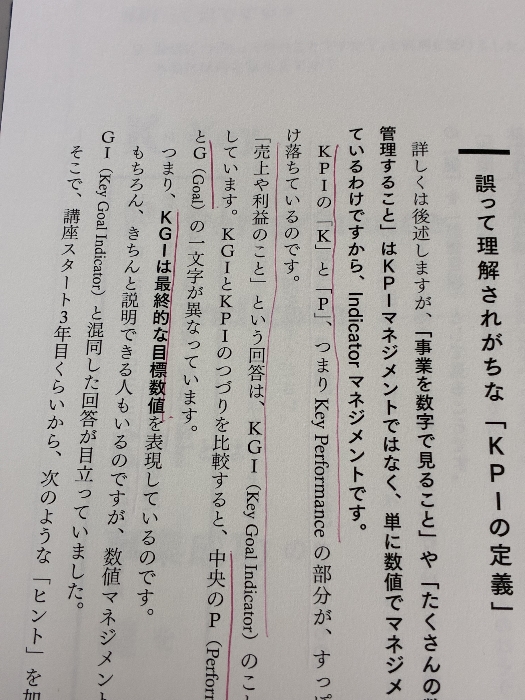 誤って理解されがちな「KPIの定義」
詳しくは後述しますが、「事業を数字で見ること」や「たくさんの
管理すること」はKPIマネジメントではなく、単に数値でマネジメ
ているわけですから、Indicator マネジメントです。
KPIの「K」と「P」、つまり Key Performance の部分が、すっぽ
け落ちているのです。
「売上や利益のこと」という回答は、KGI（Key Goal Indicator）のこ
しています。KGIとKPIのつづりを比較すると、中央のP（Perform
とG（Goal）の一文字が異なっています。
つまり、KGIは最終的な目標数値を表現しているのです。
もちろん、きちんと説明できる人もいるのですが、数値マネジメント
GI（Key Goal Indicator）と混同した回答が目立っていました。
そこで、講座スタート3年目くらいから、次のような「ヒント」を加